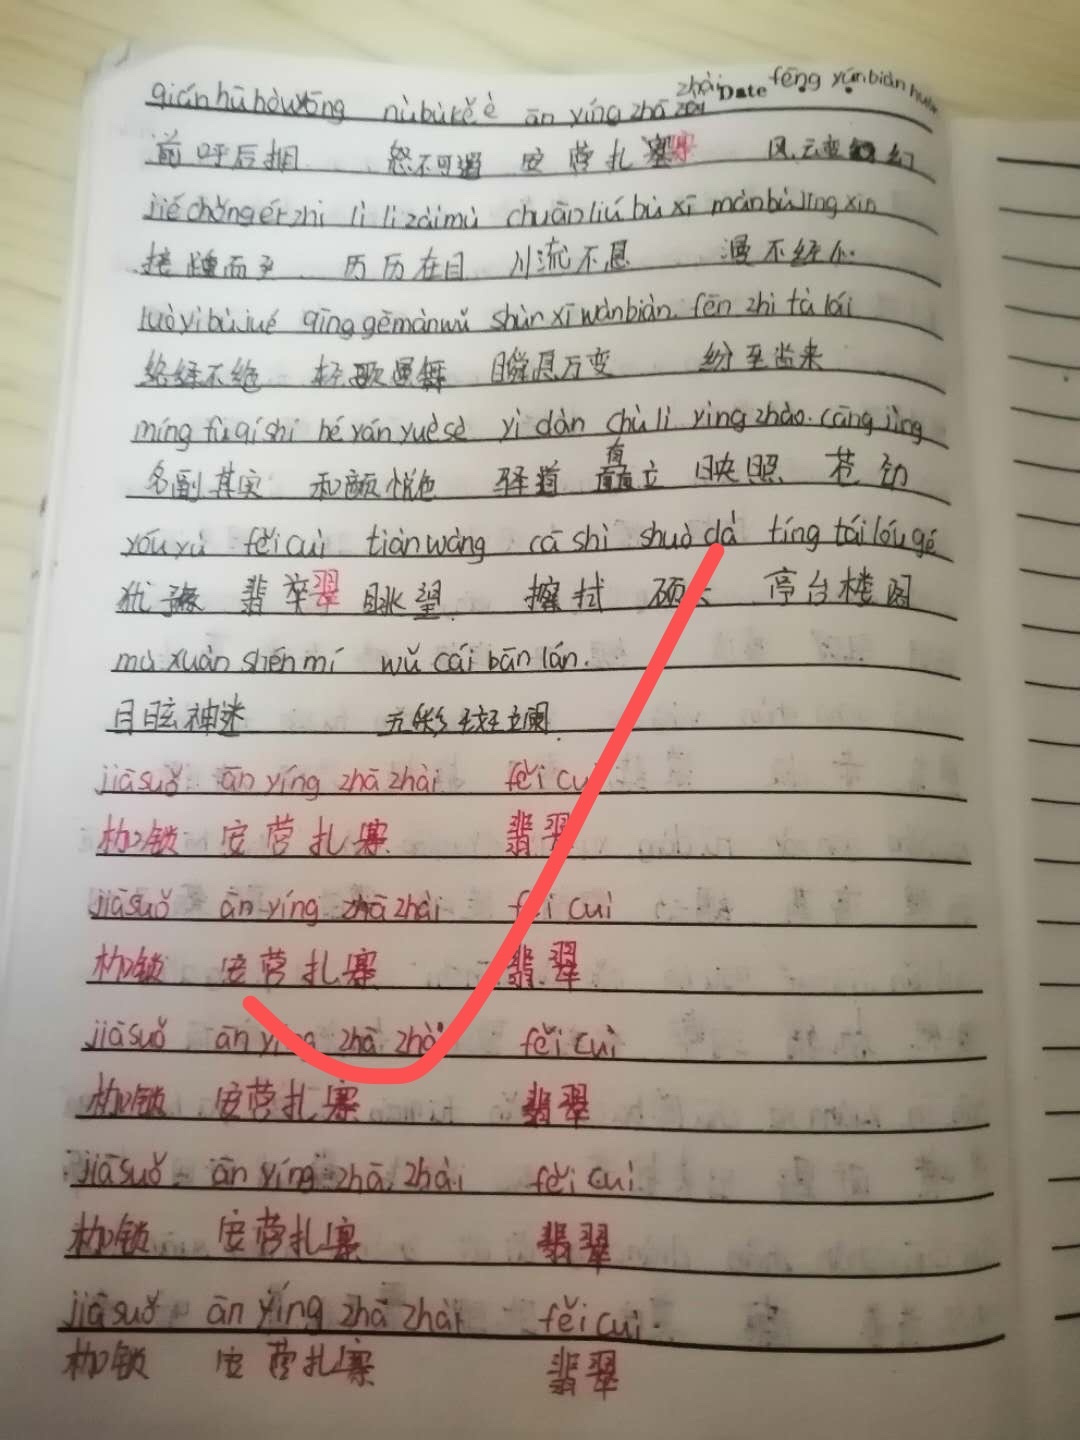 qián hū hòu yōng nù bù kě è ān yíng zhā zhài Date fēng yún biàn huàn
前呼后拥 怒不可遏 安营扎寨 风云变幻
jiē chǒng ér zhì lì lì zài mù chuān liú bù xī màn bù jīng xīn
接踵而至 历历在目 川流不息 漫不经心
luò yì bù jué qīng gē màn wǔ shùn xī wàn biàn fēn zhì tà lái
络绎不绝 轻歌曼舞 瞬息万变 纷至沓来
míng fù qí shí hé yán yuè sè yì dàn chù lì yìng zhào cāng jìng
名副其实 和颜悦色 驿道 矗立 映照 苍劲
yóu yù fěi cuì tiào wàng cā shì shuò dà tíng tái lóu gé
犹豫 翡翠 眺望 擦拭 硕大 亭台楼阁
mù xuàn shén mí wǔ cǎi bān lán
目眩神迷 五彩斑斓
jiā suǒ ān yíng zhā zhài fěi cuì
枷锁 安营扎寨 翡翠
jiā suǒ ān yíng zhā zhài fěi cuì
枷锁 安营扎寨 翡翠
jiā suǒ ān yíng zhā zhài fěi cuì
枷锁 安营扎寨 翡翠
jiā suǒ ān yíng zhā zhài fěi cuì
枷锁 安营扎寨 翡翠
jiā suǒ ān yíng zhā zhài fěi cuì
枷锁 安营扎寨 翡翠